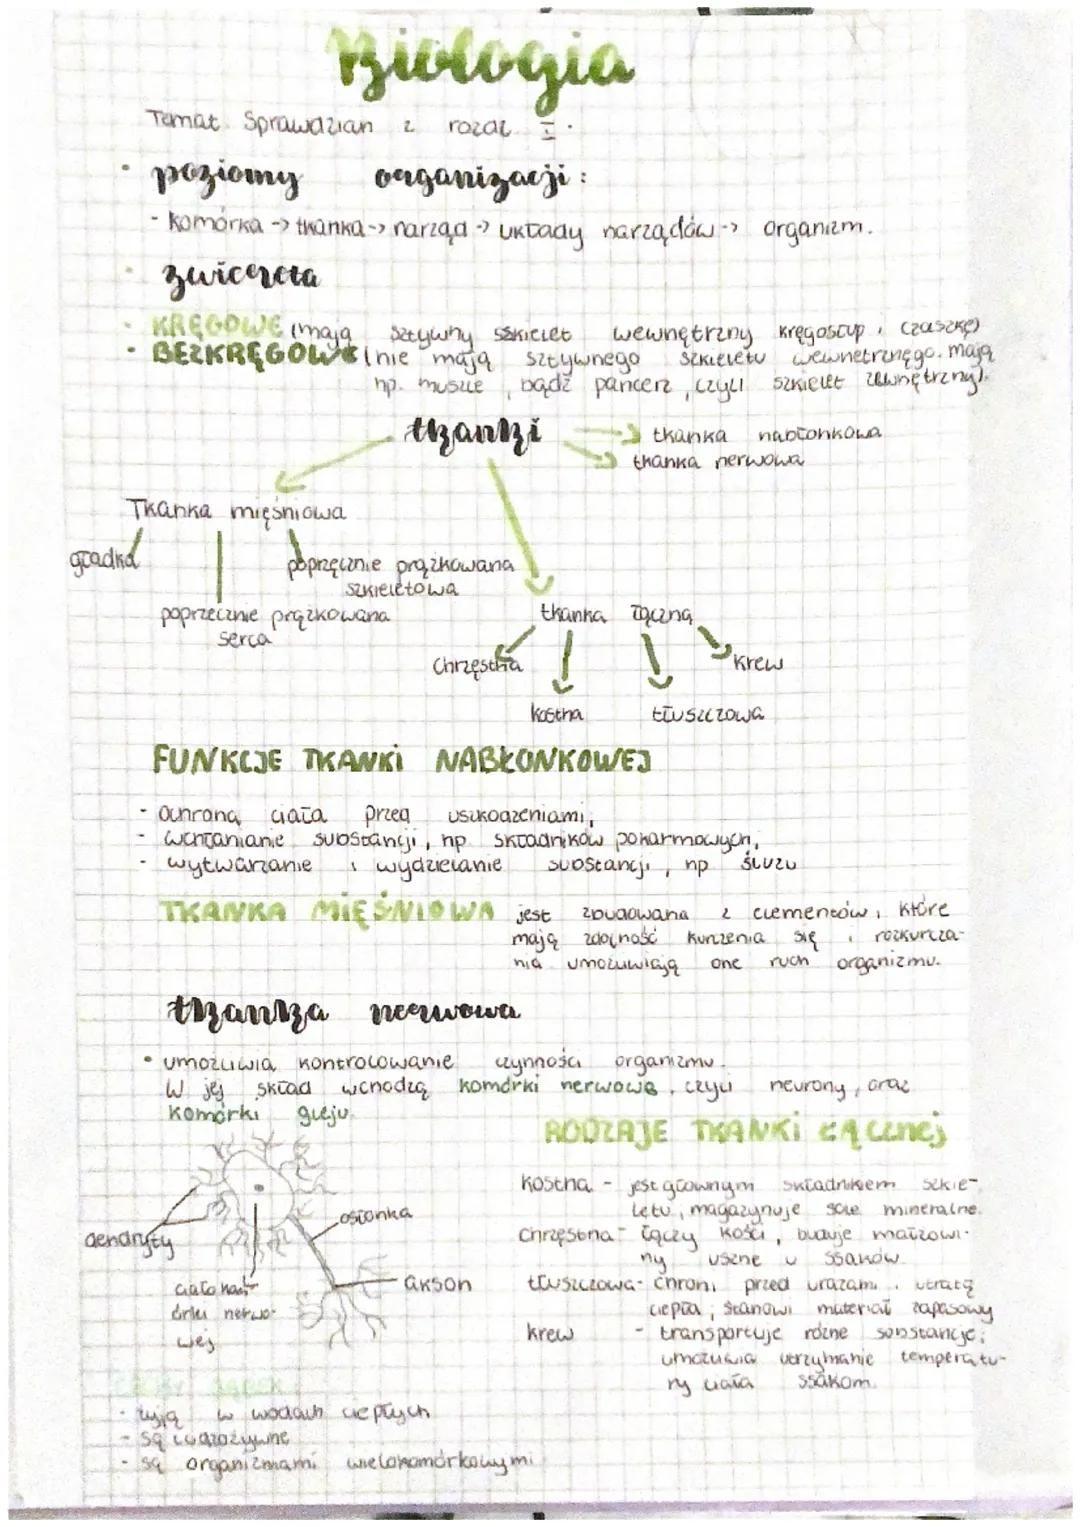 Biologia
Temat. Sprawdzian z rozdz. I.
• poziomy organizacji:
- komórka -> tkanka -> narząd -> układy narządów -> organizm.
• zwierzęta
• KRĘGOWE (mają sztywny szkielet wewnętrzny kręgosłup i czaszkę)
• BEZKRĘGOWE (nie mają sztywnego szkieletu wewnętrznego. mają
np. muszle, bądź pancerz, czyli szkielet zewnętrzny).
tkanki
tkanka nabłonkowa
tkanka nerwowa
Tkanka mięśniowa
gładka
poprzęcznie prążkowana
szkieletowa
poprzecznie prążkowana
serca
tkanka łączna
chrzęstna
krew
kostna
tłuszczowa
FUNKCJE TKANKI NABŁONKOWEJ
- ochrona ciała przed uszkodzeniami,
- wchłanianie substancji, np składników pokarmowych,
- wytwarzanie i wydzielanie substancji, np śluzu
TKANKA MIĘŚNIOWA jest zbudowana z elementów, które
mają zdolność kurczenia się i rozkurcza-
nia umożliwiają one ruch organizmu.
tkanka nerwowa
• umożliwia kontrolowanie czynności organizmu.
W jej skład wchodzą komórki nerwowe, czyli neurony, oraz
komórki gleju.
RODZAJE TKANKI ŁĄCZNEJ
kostna - jest głownym składnikiem szkie-
letu, magazynuje sole mineralne.
chrzęstna - łączy kości, buduje małżowi-
ny uszne u ssaków.
tłuszczowa - chroni przed urazami i utratą
ciepła, stanowi materiał zapasowy
krew - transportuje różne substancje;
umożliwia utrzymanie temperatu-
ry ciała ssakom.
dendryty
osłonka
akson
ciało kom-
órki nerwo-
wej
- żyją w wodach ciepłych
- są cudzożywne
- są organizmami wielokomórkowymi